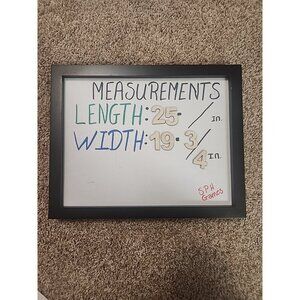 MEASUREMENTS
LENGTH: 25- / IN.
WIDTH: 19-3/4 IN.
SPH
Games